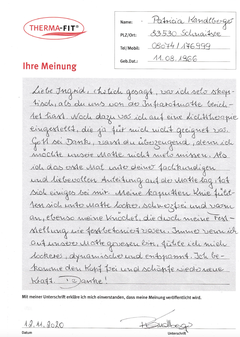 THERMA-FIT®
Name: Patricia Kandlberger
PLZ/Ort: 83530 Schnaitsee
Tel/Mobil: 08074/176999
Geb.Dat.: 11.08.1966
Ihre Meinung
Liebe Ingrid, ehrlich gesagt, war ich sehr skep-
tisch, als du uns von der Infrarotmatte berich-
tet hast. Doch dazu war ich auf eine Lichttherapie
eingestellt, die ja für mich nicht geeignet war.
Gott sei Dank, warst du überzeugend, denn ich
möchte unsere Matte nicht mehr missen. Als
ich das erste Mal unter deiner fachkundigen
und liebevollen Anleitung auf der Matte lag, tat
sich einiges bei mir. Meine kaputten Knie fühl-
ten sich unter Matte locker, schmerzfrei und warm
an, ebenso meine Knöchel, die durch meine Fest-
stellung wie festbetoniert waren. Immer wenn ich
auf unserer Matte gewesen bin, fühle ich mich
lockerer, dynamischer und entspannt. Ich be-
komme den Kopf frei und schöpfe wieder neue
Kraft. Danke!
Mit meiner Unterschrift erkläre ich mich einverstanden, dass meine Meinung veröffentlicht wird.
12.11.2020
Datum
Unterschrift